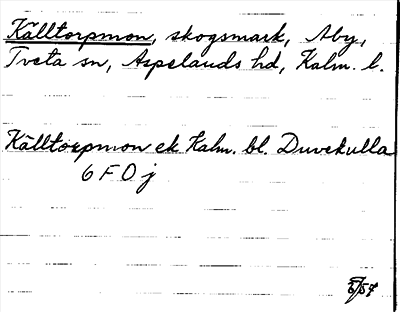 Källtorpmon, skogsmark, Åby,
Tveta sn, Aspelands hd, Kalm. l.
Källtorpmon ek Kalm. bl. Duvekulla
6 F 0 j